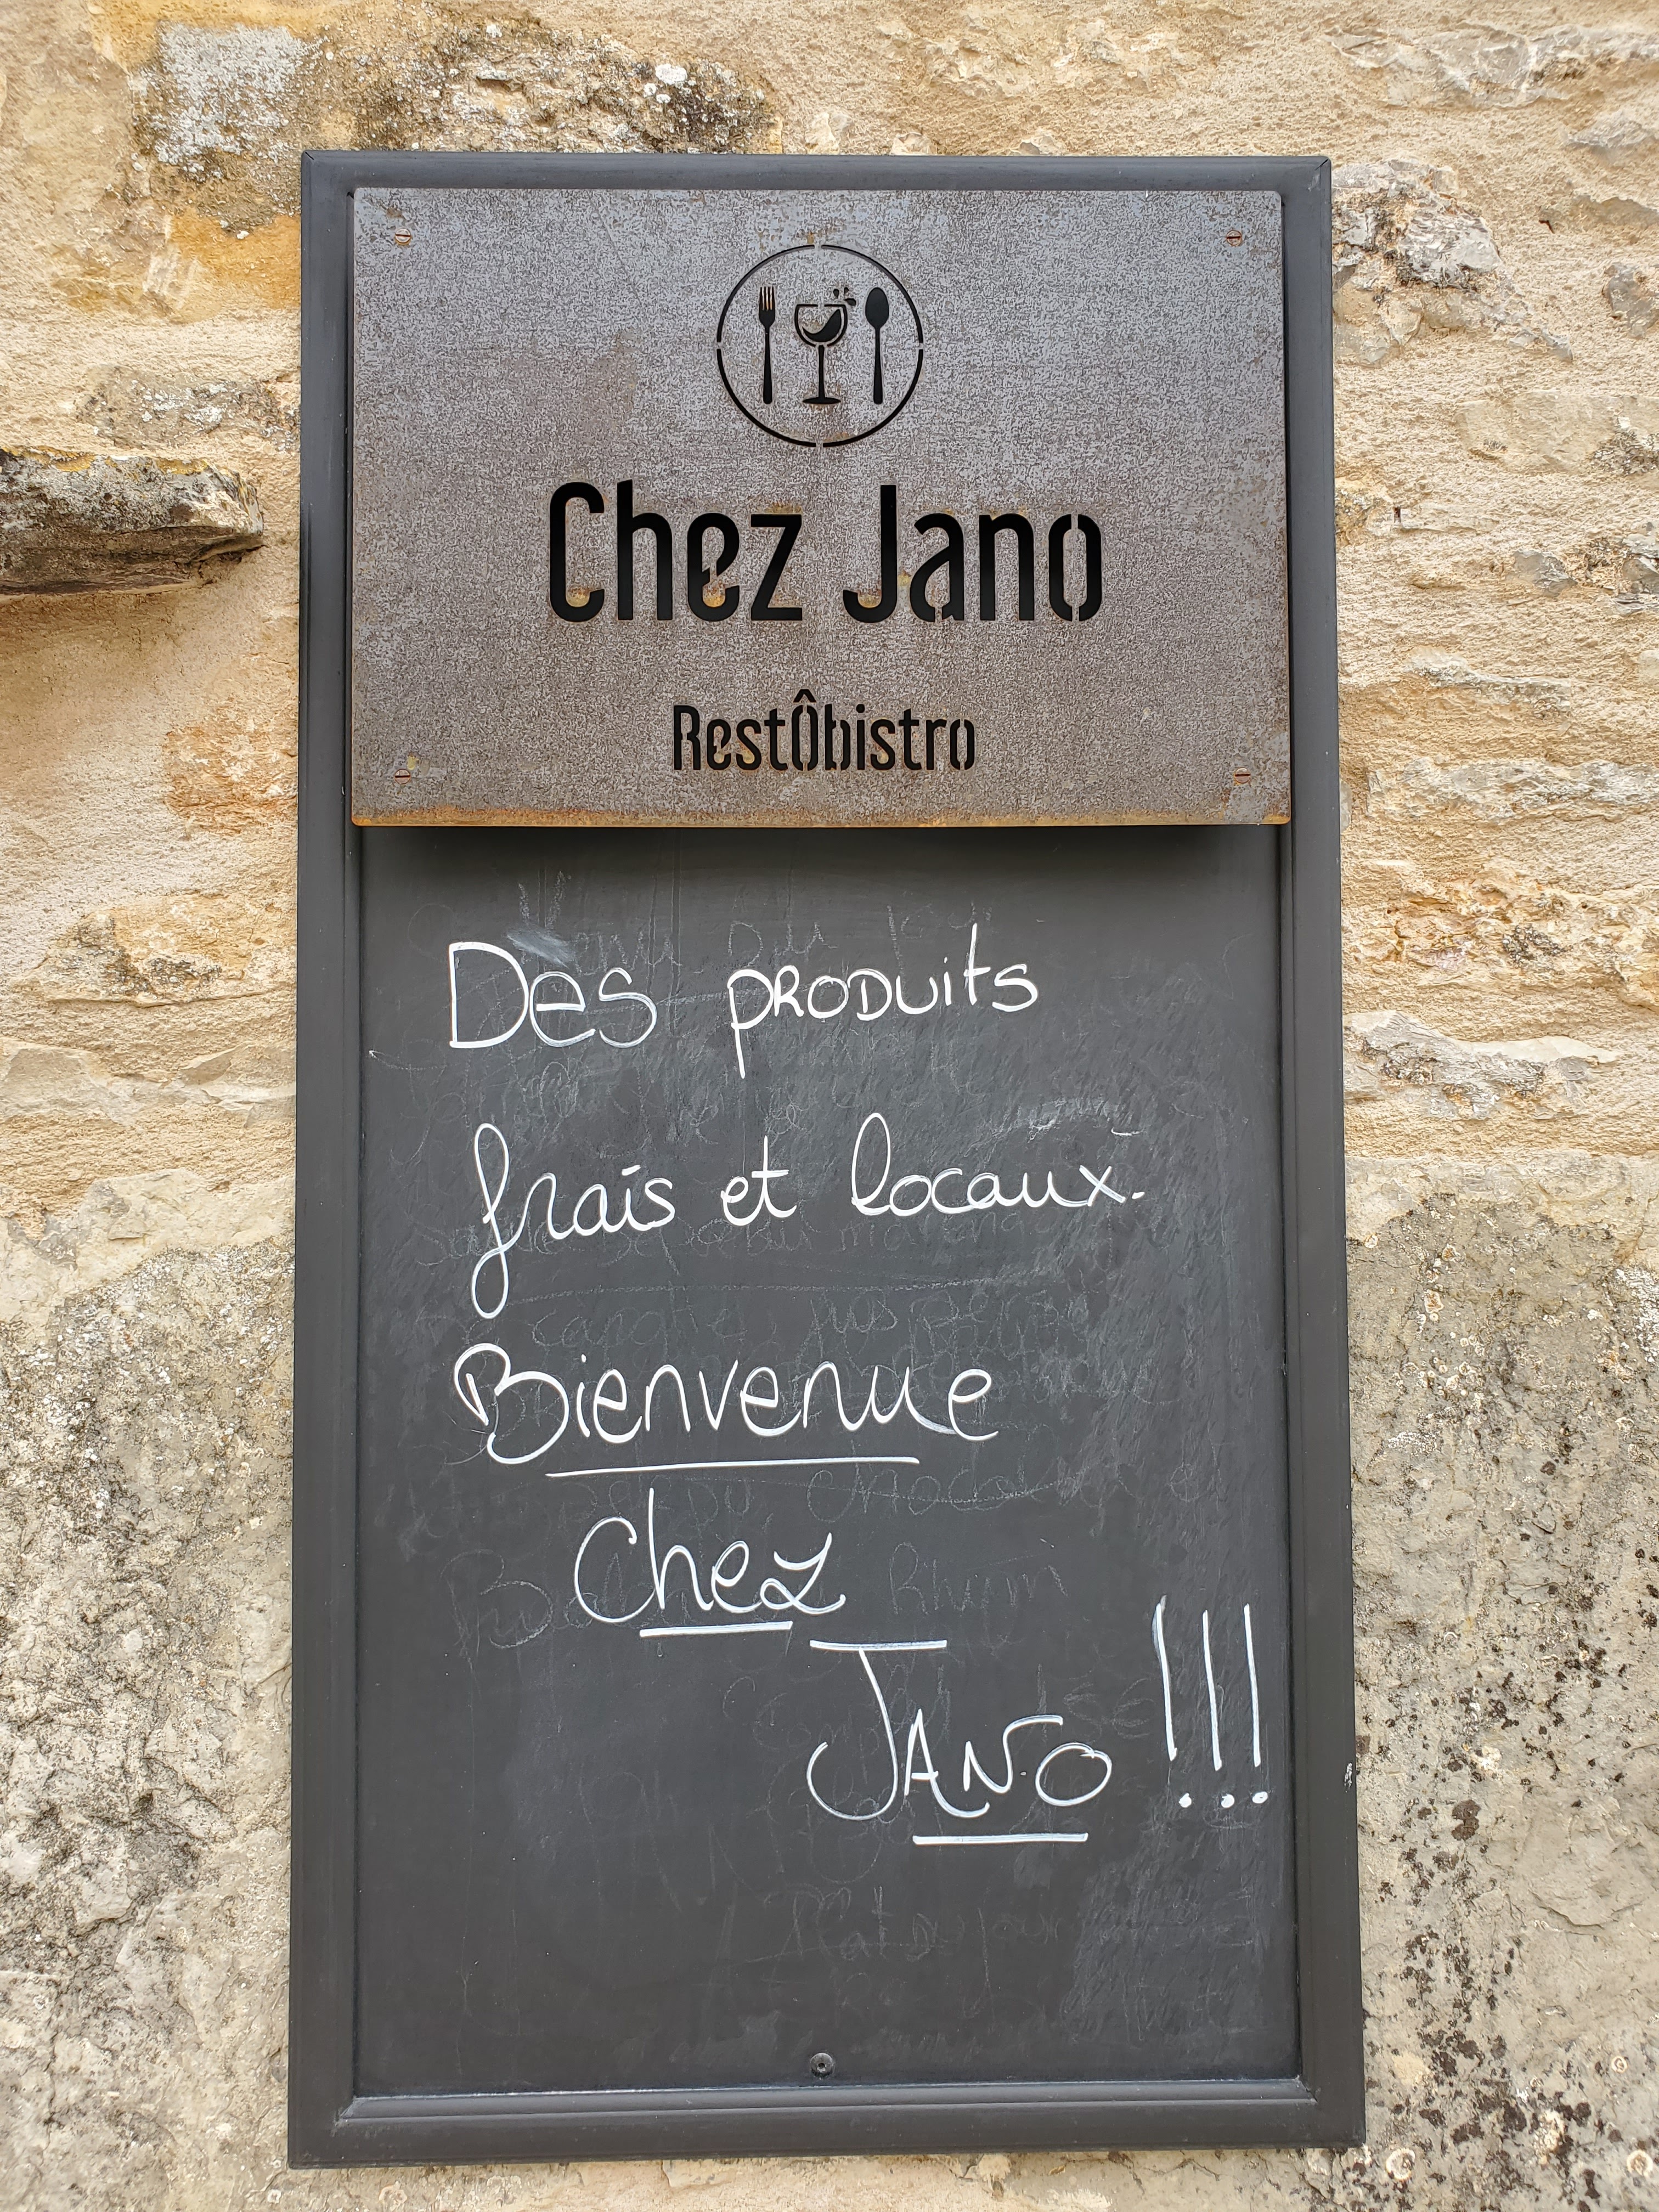 Chez Jano
RestÔbistro
Des produits
frais et locaux.
Bienvenue
Chez
JANO !!!